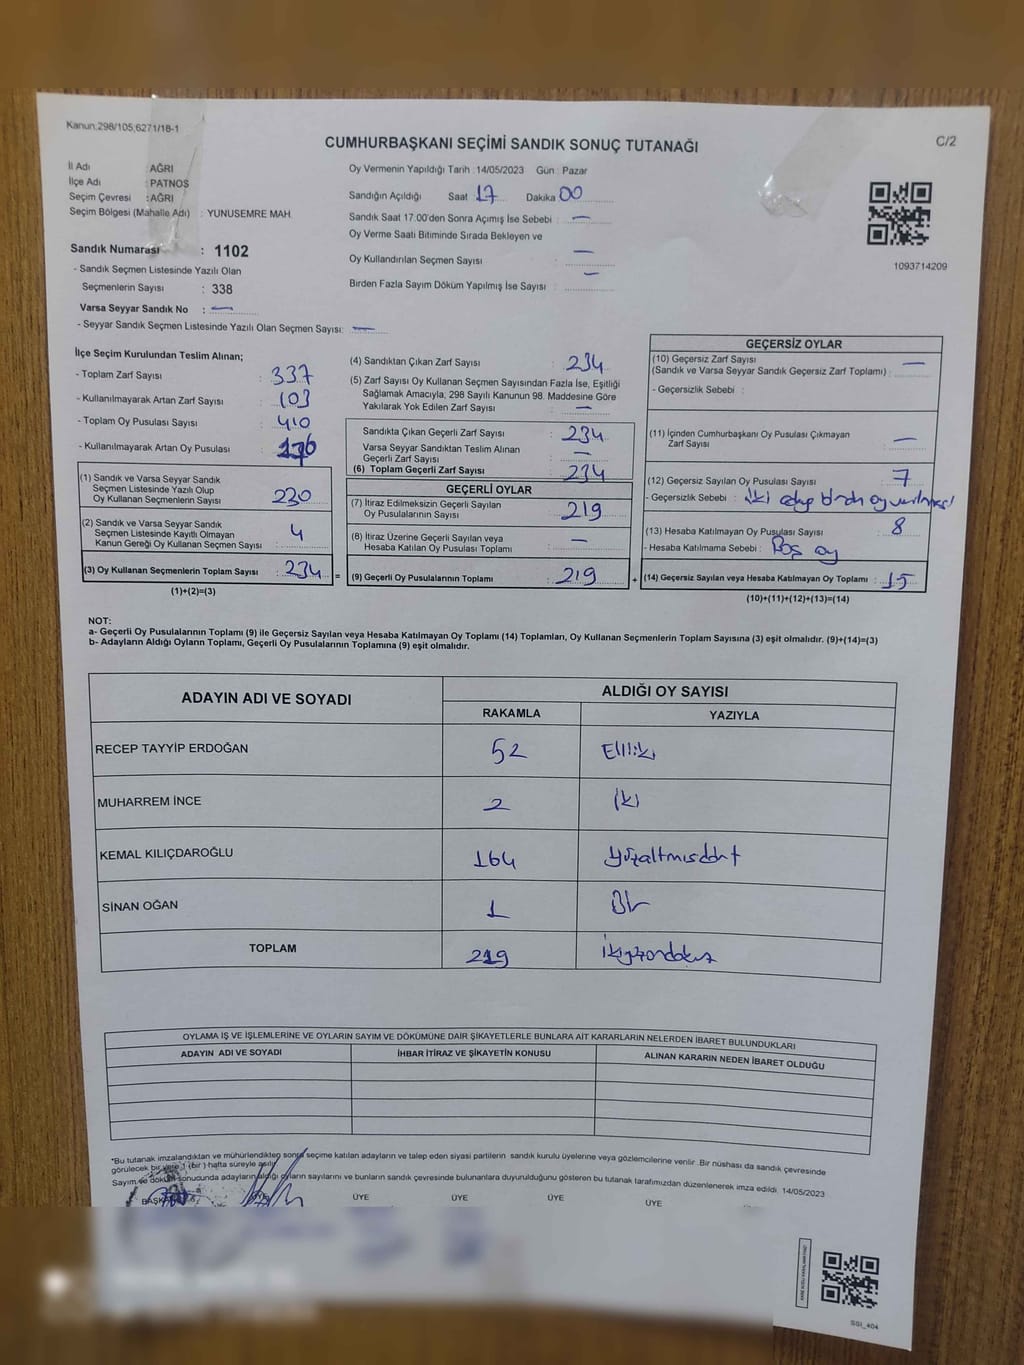 Kanun:298/105,6271/18-1
C/2
CUMHURBAŞKANI SEÇİMİ SANDIK SONUÇ TUTANAĞI
İl Adı : AĞRI
İlçe Adı : PATNOS
Seçim Çevresi : AĞRI
Seçim Bölgesi (Mahalle Adı) : YUNUSEMRE MAH.
Sandık Numarası : 1102
- Sandık Seçmen Listesinde Yazılı Olan
Seçmenlerin Sayısı : 338
Varsa Seyyar Sandık No : —
- Seyyar Sandık Seçmen Listesinde Yazılı Olan Seçmen Sayısı: —
Oy Vermenin Yapıldığı Tarih : 14/05/2023 Gün : Pazar
Sandığın Açıldığı Saat 17 Dakika 00
Sandık Saat 17:00'den Sonra Açımış İse Sebebi : —
Oy Verme Saati Bitiminde Sırada Bekleyen ve
Oy Kullandırılan Seçmen Sayısı : —
Birden Fazla Sayım Döküm Yapılmış İse Sayısı : —
1093714209
İlçe Seçim Kurulundan Teslim Alınan;
- Toplam Zarf Sayısı : 337
- Kullanılmayarak Artan Zarf Sayısı : 103
- Toplam Oy Pusulası Sayısı : 410
- Kullanılmayarak Artan Oy Pusulası :
(1) Sandık ve Varsa Seyyar Sandık
Seçmen Listesinde Yazılı Olup
Oy Kullanan Seçmenlerin Sayısı : 230
(2) Sandık ve Varsa Seyyar Sandık
Seçmen Listesinde Kayıtlı Olmayan
Kanun Gereği Oy Kullanan Seçmen Sayısı : 4
(3) Oy Kullanan Seçmenlerin Toplam Sayısı : 234 =
(1)+(2)=(3)
(4) Sandıktan Çıkan Zarf Sayısı : 234
(5) Zarf Sayısı Oy Kullanan Seçmen Sayısından Fazla İse, Eşitliği
Sağlamak Amacıyla, 298 Sayılı Kanunun 98. Maddesine Göre
Yakılarak Yok Edilen Zarf Sayısı : —
Sandıkta Çıkan Geçerli Zarf Sayısı : 234
Varsa Seyyar Sandıktan Teslim Alınan
Geçerli Zarf Sayısı : —
(6) Toplam Geçerli Zarf Sayısı : 234
GEÇERLİ OYLAR
(7) İtiraz Edilmeksizin Geçerli Sayılan
Oy Pusulalarının Sayısı : 219
(8) İtiraz Üzerine Geçerli Sayılan veya
Hesaba Katılan Oy Pusulası Toplamı : —
(9) Geçerli Oy Pusulalarının Toplamı : 219 +
GEÇERSİZ OYLAR
(10) Geçersiz Zarf Sayısı
(Sandık ve Varsa Seyyar Sandık Geçersiz Zarf Toplamı) : —
- Geçersizlik Sebebi :
(11) İçinden Cumhurbaşkanı Oy Pusulası Çıkmayan
Zarf Sayısı : —
(12) Geçersiz Sayılan Oy Pusulası Sayısı : 7
- Geçersizlik Sebebi : iki
(13) Hesaba Katılmayan Oy Pusulası Sayısı : 8
- Hesaba Katılmama Sebebi : Boş oy
(14) Geçersiz Sayılan veya Hesaba Katılmayan Oy Toplamı : 15
(10)+(11)+(12)+(13)=(14)
NOT:
a- Geçerli Oy Pusulalarının Toplamı (9) ile Geçersiz Sayılan veya Hesaba Katılmayan Oy Toplamı (14) Toplamları, Oy Kullanan Seçmenlerin Toplam Sayısına (3) eşit olmalıdır. (9)+(14)=(3)
b- Adayların Aldığı Oyların Toplamı, Geçerli Oy Pusulalarının Toplamına (9) eşit olmalıdır.
ADAYIN ADI VE SOYADI
ALDIĞI OY SAYISI
RAKAMLA YAZIYLA
RECEP TAYYİP ERDOĞAN 52 Elliiki
MUHARREM İNCE 2 İki
KEMAL KILIÇDAROĞLU 164 yüzaltmışdört
SİNAN OĞAN 1 Bir
TOPLAM 219 ikiyüzondokuz
OYLAMA İŞ VE İŞLEMLERİNE VE OYLARIN SAYIM VE DÖKÜMÜNE DAİR ŞİKAYETLERLE BUNLARA AİT KARARLARIN NELERDEN İBARET BULUNDUKLARI
ADAYIN ADI VE SOYADI İHBAR İTİRAZ VE ŞİKAYETİN KONUSU ALINAN KARARIN NEDEN İBARET OLDUĞU
*Bu tutanak imzalandıktan ve mühürlendikten sonra seçime katılan adayların ve talep eden siyasi partilerin sandık kurulu üyelerine veya gözlemcilerine verilir. Bir nüshası da sandık çevresinde
görülecek bir yere 1 (bir) hafta süreyle asılır.
Sayım ve döküm sonucunda adayların aldığı oyların sayılarını ve bunların sandık çevresinde bulunanlara duyurulduğunu gösteren bu tutanak tarafımızdan düzenlenerek imza edildi. 14/05/2023
BAŞKAN ÜYE ÜYE ÜYE ÜYE ÜYE
SSI_404